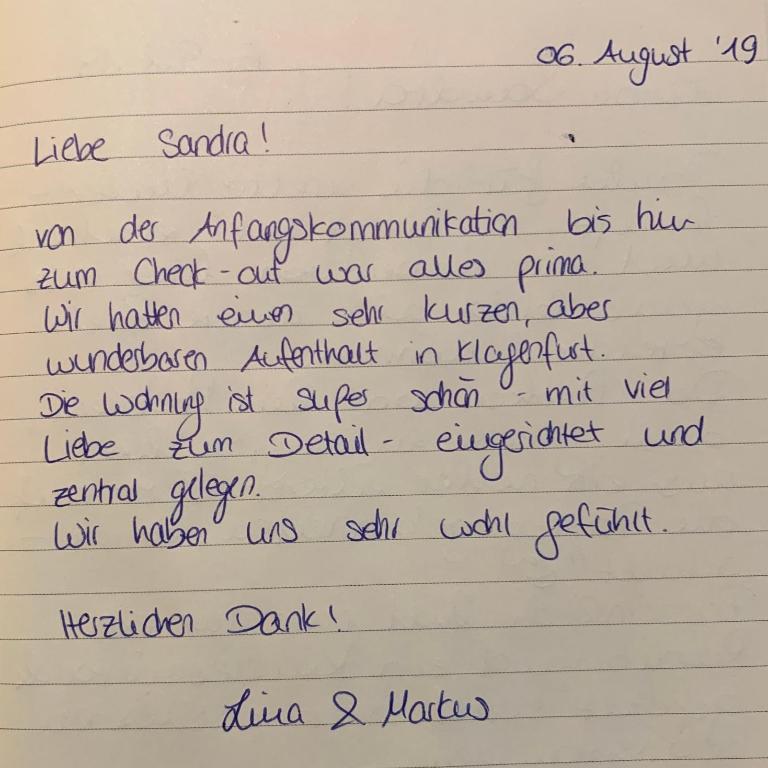 06. August '19
Liebe Sandra!
von der Anfangskommunikation bis hin
zum Check-out war alles prima.
Wir hatten einen sehr kurzen, aber
wunderbaren Aufenthalt in Klagenfurt.
Die Wohnung ist super schön - mit viel
Liebe zum Detail - eingerichtet und
zentral gelegen.
Wir haben uns sehr wohl gefühlt.
Herzlichen Dank!
Lina & Markus